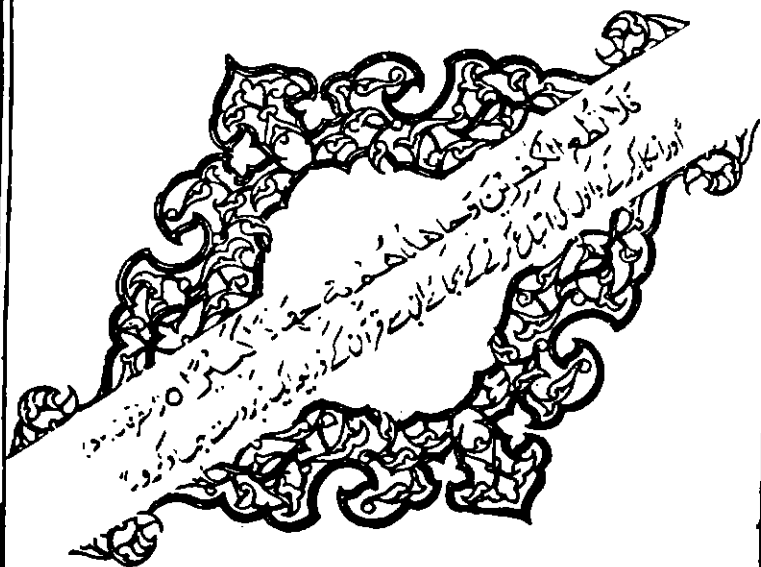 فَلَا تُطِعِ الْكٰفِرِیْنَ وَجَاهِدْهُمْ بِهٖ جِهَادًا كَبِیْرًا ○ (الفرقان۔
"اور انکار کرنے والوں کی اتباع کرنے کے بجائے ان سے قرآن کے ذریعہ ایک زبردست جہاد کرو۔"